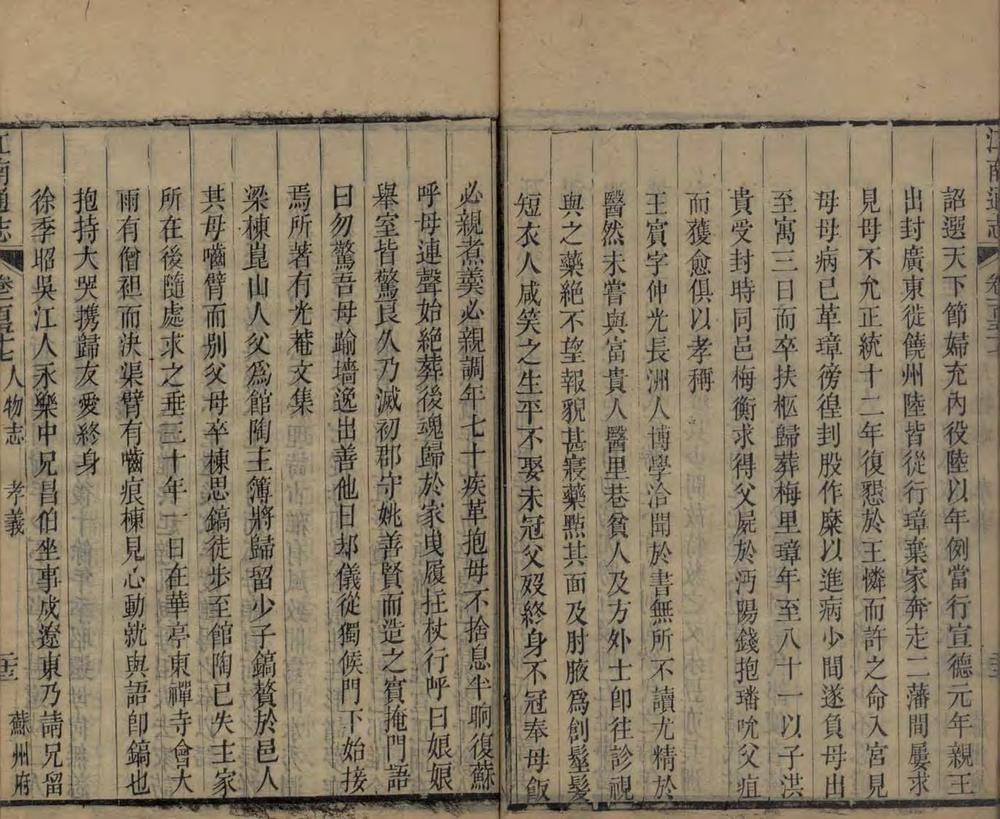 江南通志
詔選天下節婦充內役陸以年例當行宣德元年親王
出封廣東徙饒州陸皆從行璋棄家奔走二藩間屢求
見母不允正統十二年復懇於王憐而許之命入宮見
母母病已革璋徬徨刲股作糜以進病少間遂負母出
至寓三日而卒扶柩歸葬梅里璋年至八十一以子洪
貴受封時同邑梅衡求得父屍於沔陽錢抱璠吮父疽
而獲愈俱以孝稱
王賓字仲光長洲人博學洽聞於書無所不讀尤精於
醫然未嘗與富貴人醫里巷貧人及方外士卽往診視
與之藥絕不望報貌甚寢藥㸃其面及肘腋爲創鬔髮
短衣人咸笑之生平不娶未冠父歿終身不冠奉母飯
必親煮羮必親調年七十疾革抱母不捨息半晌復蘇
呼母連聲始絕葬後魂歸於家曳履拄杖行呼曰娘娘
舉室皆驚良久乃滅初郡守姚善賢而造之賓掩門語
曰勿驚吾母踰墻逸出善他日却儀從獨候門下始接
焉所著有光菴文集
梁棟崑山人父爲館陶主簿將歸留少子鎬贅於邑人
其母嚙臂而别父母卒棟思鎬徒步至館陶已失主家
所在後隨處求之垂三十年一日在華亭東禪寺會大
雨有僧袒而決渠臂有嚙痕棟見心動就與語卽鎬也
抱持大哭携歸友愛終身
徐季昭吳江人永樂中兄昌伯坐事戍遼東乃請兄留
江南通志 卷一百五十七 人物志 孝義 蘇州府